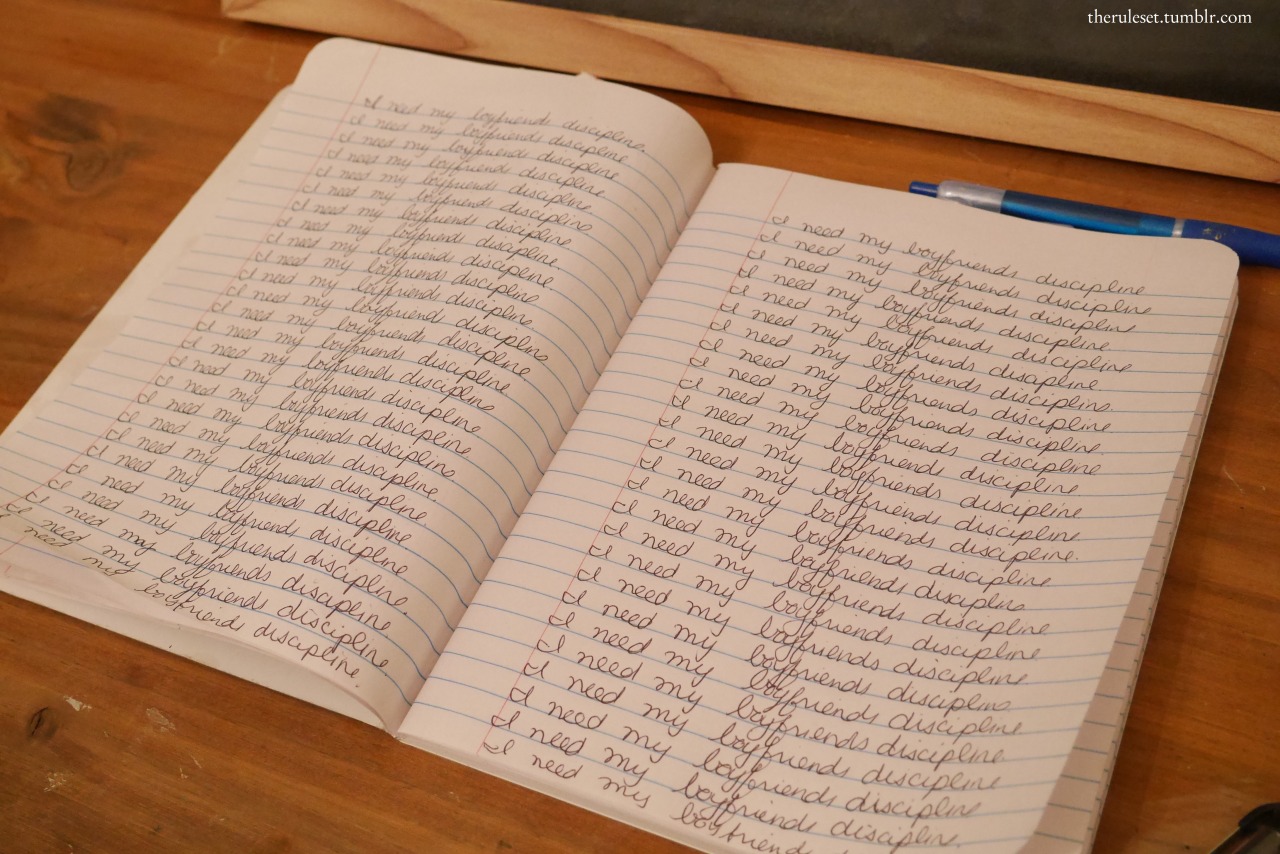 theruleset.tumblr.com
I need my boyfriends discipline.
I need my boyfriends discipline.
I need my boyfriends discipline.
I need my boyfriends discipline.
I need my boyfriends discipline.
I need my boyfriends discipline.
I need my boyfriends discipline.
I need my boyfriends discipline.
I need my boyfriends discipline.
I need my boyfriends discipline.
I need my boyfriends discipline.
I need my boyfriends discipline.
I need my boyfriends discipline.
I need my boyfriends discipline.
I need my boyfriends discipline.
I need my boyfriends discipline.
I need my boyfriends discipline.
I need my boyfriends discipline.
I need my boyfriends discipline.
I need my boyfriends discipline.
I need my boyfriends discipline.
I need my boyfriends discipline.
I need my boyfriends discipline.
I need my boyfriends discipline.
I need my boyfriends discipline.
I need my boyfriends discipline
I need my boyfriends discipline
I need my boyfriends discipline
I need my boyfriends discipline
I need my boyfriends discipline
I need my boyfriends discipline.
I need my boyfriends discipline
I need my boyfriends discipline.
I need my boyfriends discipline
I need my boyfriends discipline
I need my boyfriends discipline
I need my boyfriends discipline
I need my boyfriends discipline.
I need my boyfriends discipline
I need my boyfriends discipline
I need my boyfriends discipline
I need my boyfriends discipline
I need my boyfriends discipline
I need my boyfriends discipline
I need my boyfriends discipline
I need my boyfriends discipline
I need my boyfriends discipline
I need my boyfriends discipline
I need my boyfriends discipline
I need my boyfriends discipline.
I need my boyfriends